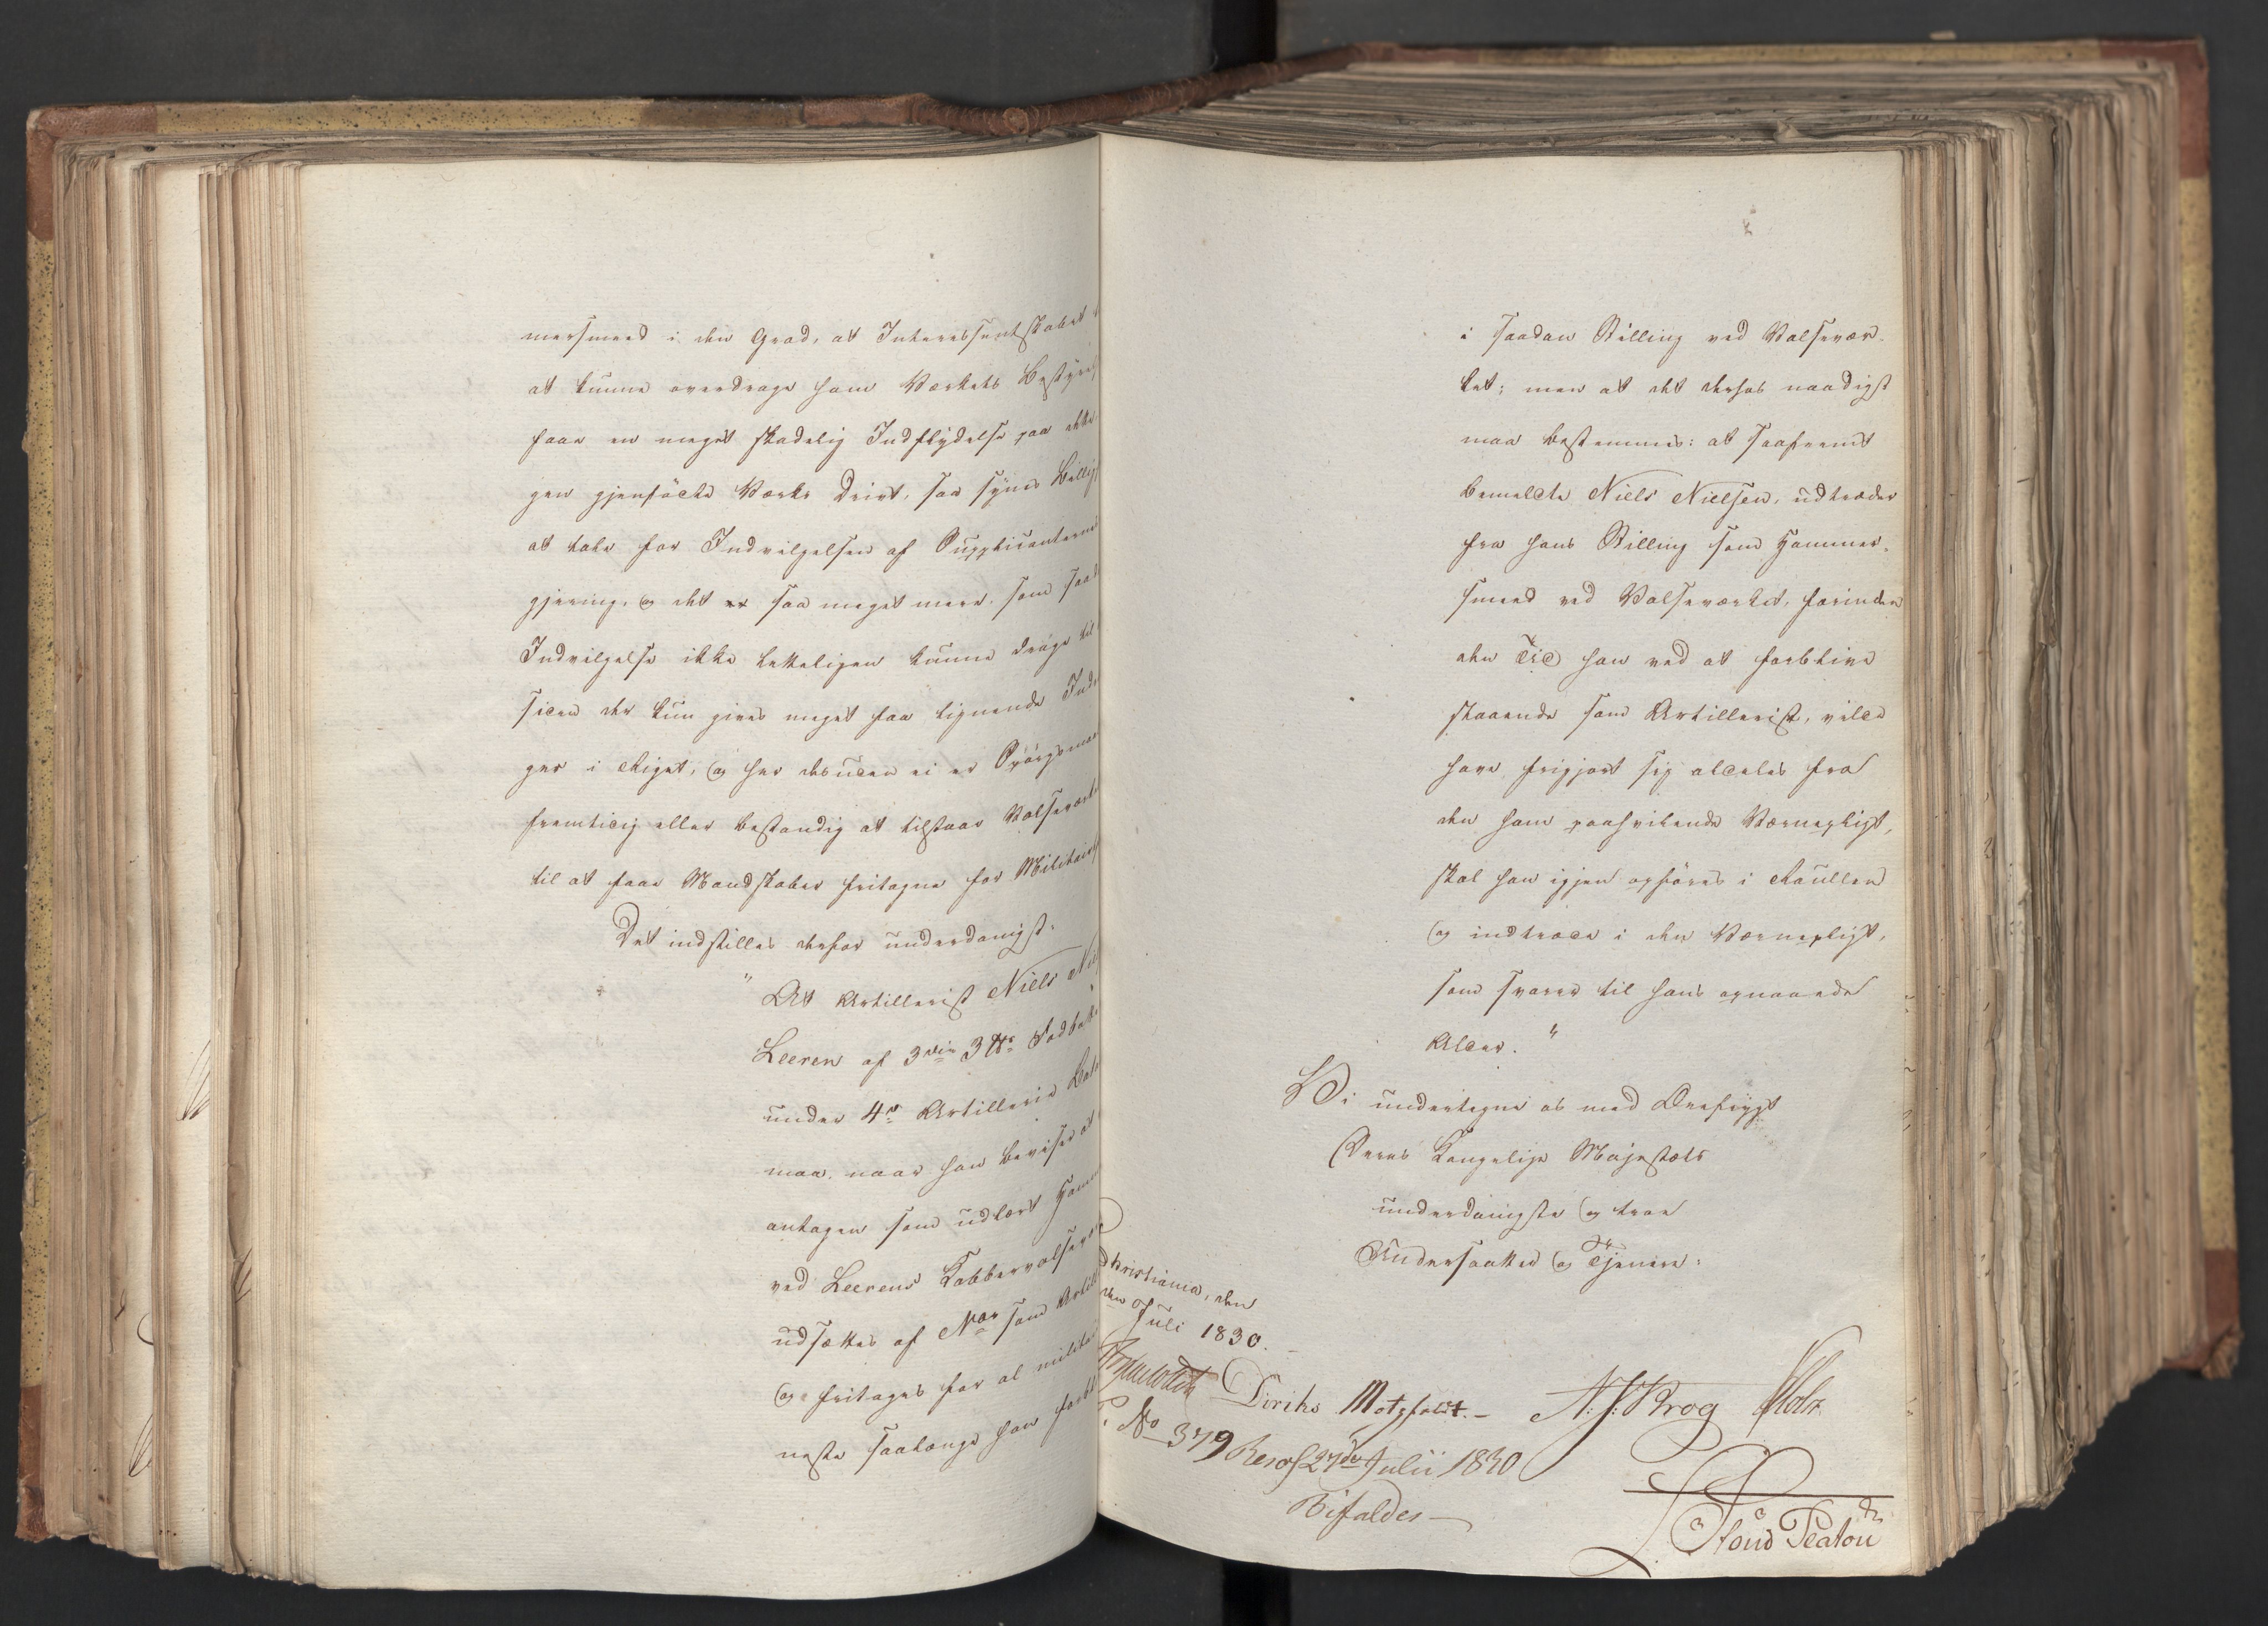 mersmed i den Grad, at Interessentskabet
at kunne overdrage ham Værkets Bestyrel
faae en meget skadelig Indflydelse paa dette
gen gjenføelte Værks Drivt, saa synes Billig
at tale for Indvilgelsen af Supplicanternes
gjæring, og det er saa meget mere, som saad
Indvilgelse ikke letteligen kunne drage til
siden der kun gives meget faa lignende Ind
ger i Riget, og her desuden ei er Spørgsmaa
fremtidig eller bestandig at tilstaae Valseværk
til at faae Mandskaber fritagne for Militair
Det indstilles derfor underdanigst:
"At Artillerist Niels Niel
Leeren af 3die 3 ℔s Fodbatt
under 4de Artillerie Bat
maa, naar han beviser at
antagen som udlært Ham
ved Leerens Kobbervalsevæ
udsættes af Nr som Artill
og fritages for al militai
neste saalænge han forbl
i saadan Stilling ved Valsevær-
ket; men at det derhos naadigst
maa bestemmes: at saafremt
bemeldte Niels Nielsen, udtræder
fra hans Stilling som Hammer-
smed ved Valseværket, forinden
den Tid han ved at forblive
staaende som Artillerist, vilde
have frigjort sig aldeles fra
den ham paahvilende Værnepligt,
skal han igjen opføres i Rullen
og indtræde i den Værnepligt,
som svarer til hans opnaaede
Alder."
Vi undertegne os med Ærefrygt
Deres Kongelige Majestæts
underdanigste og troe
Undersaatter og Tjenere:
Christiania, den
den Juli 1830.
Diriks Motzfeldt.- N. J. Krog Holst
No 379 Resol 27de Julii 1830
Bifaldes—
Platou